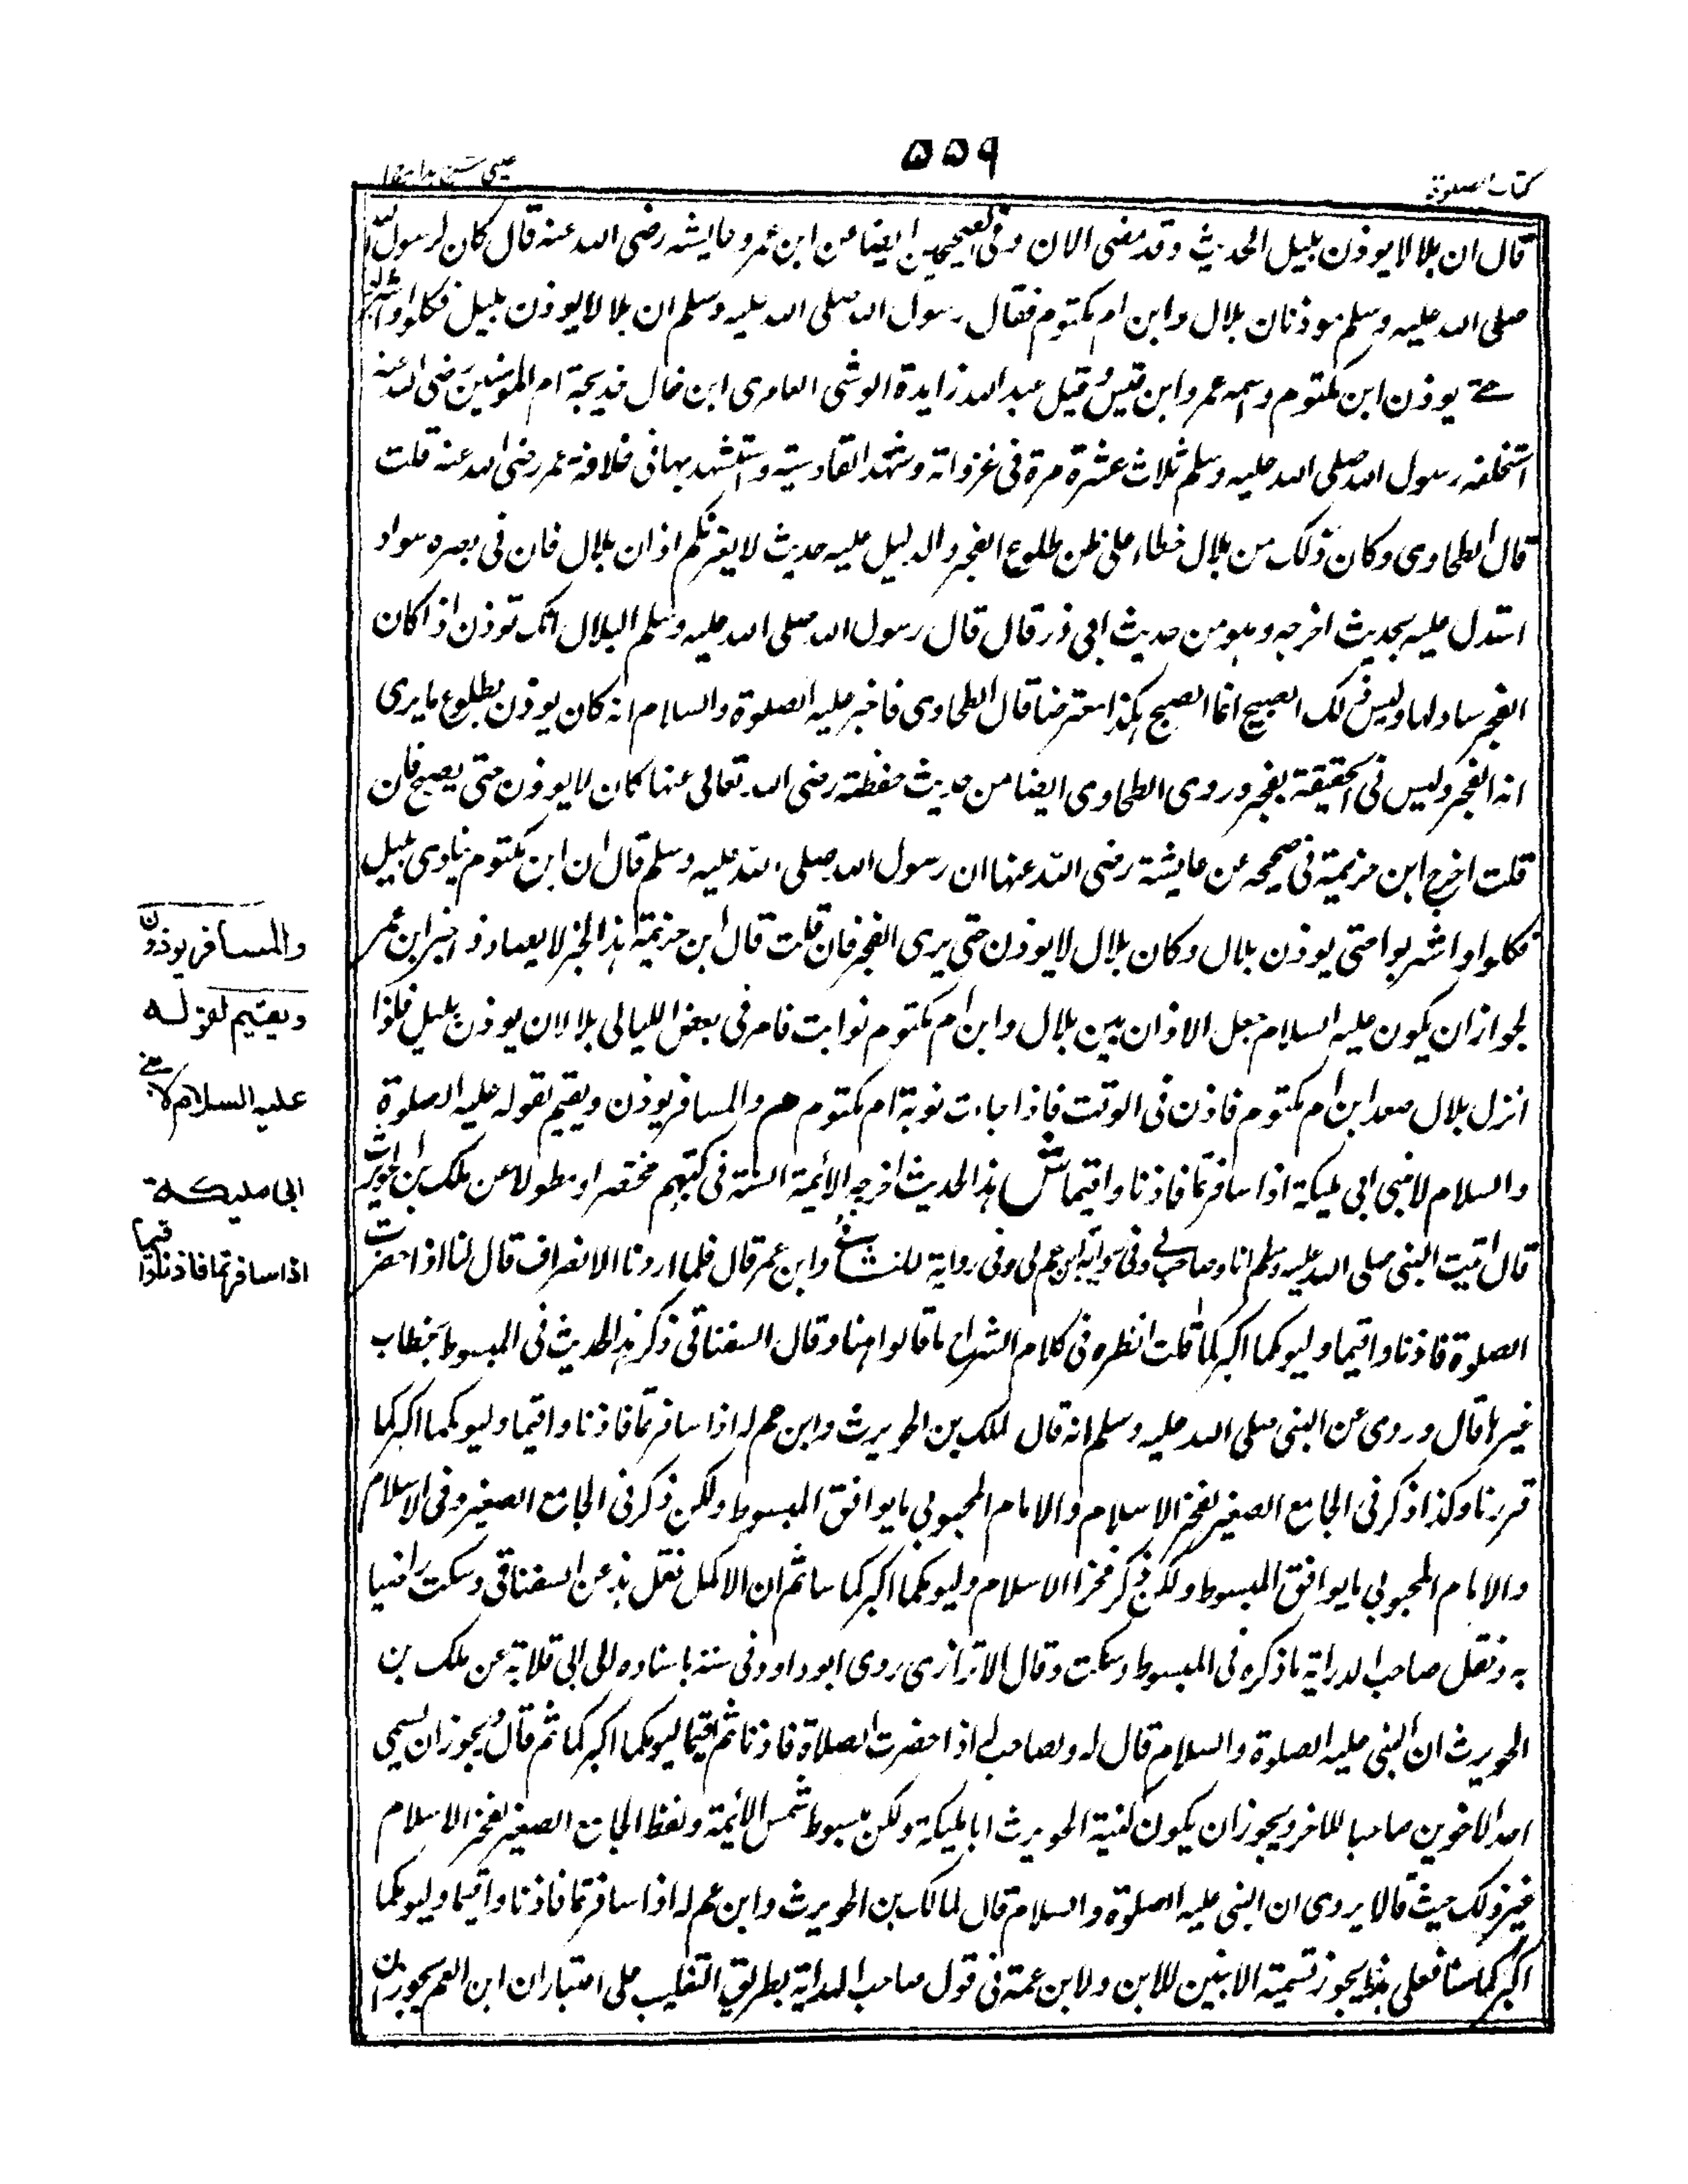 ۵۵۹
كتاب الصلوة
عینی شرح ہدایہ ج۱
قال ان بلالا يوذن بليل الحديث وقد مضى الان وفى الصحيحين ايضا عن ابن عمر وعايشه رضى الله عنه قال كان لرسول الله
صلى الله عليه وسلم موذنان بلال وابن ام مكتوم فقال رسول الله صلى الله عليه وسلم ان بلالا يوذن بليل فكلوا واشربوا
حتے يوذن ابن مكتوم واسمه عمرو ابن قيس وقيل عبد الله زايدة الوشى العامرى ابن خال خديجة ام المؤمنين رضى الله عنه
استخلفه رسول الله صلى الله عليه وسلم ثلاث عشرة مرة فى غزواته وشهد القادسية واستشهد بها فى خلافة عمر رضى الله عنه قلت
قال الطحاوى وكان ذلك من بلال خطاء على ظن طلوع الفجر والدليل عليه حديث لا يغرنكم اذان بلال فان فى بصره سواد
استدل عليه بحديث اخرجه وهو من حديث ابى ذر قال قال رسول الله صلى الله عليه وسلم البلال انك توذن اذا كان
الفجر ساد لها وليس ذلك الصبح انما الصبح هكذا معترضا قال الطحاوى فاخبر عليه الصلوة والسلام انه كان يوذن بطلوع ما يرى
انه الفجر وليس فى الحقيقة بفجر وروى الطحاوى ايضا من حديث حفظة رضى الله تعالى عنها كان لا يوذن حتى يصبح فان
قلت اخرج ابن خزيمة فى صحيحه عن عايشة رضى الله عنها ان رسول الله صلى الله عليه وسلم قال ان ابن مكتوم ينادى بليل
فكلوا واشربوا حتى يوذن بلال وكان بلال لا يوذن حتى يرى الفجر فان قلت قال ابن خزيمة هذا الخبر لا يعاد وذ اخبر ابن عمر
لجواز ان يكون عليه السلام جعل الاذان بين بلال وابن ام مكتوم نوابت فامر فى بعض الليالى بلالا ان يوذن بليل فلذا
انزل بلال صعد ابن ام مكتوم فاذن فى الوقت فاذا جاءت نوبة ام مكتوم هم والمسافر يوذن ويقيم لقوله عليه الصلوة
والسلام لابنى ابى مليكة اذا سافرتما فاذنا واقيما ش هذا الحديث اخرجه الائمة الستة فى كتبهم مختصرا ومطولا عن ملك بن الحويرث
قال اتيت النبى صلى الله عليه وسلم انا وصاحب لى وفى رواية ابن عم لى وفى رواية للنسائى وابن عمر قال فلما اردنا الانصراف قال لنا اذا حضرت
الصلوة فاذنا واقيما وليومكما اكبركما قلت انظره فى كلام الشراح ما قالوا هنا وقال السغناقى ذكر هذا الحديث فى المبسوط بخطاب
غيرها قال وروى عن النبى صلى الله عليه وسلم انه قال لملك بن الحويرث وابن عم له اذا سافرتما فاذنا واقيما وليومكما اكبركما
قررنا وكذا ذكر فى الجامع الصغير لفخر الاسلام والامام المحبوبى ما يوافق المبسوط ولكن ذكر فى الجامع الصغير وفى الاسلام
والامام المحبوبى ما يوافق المبسوط ولكن ذكر فخر الاسلام وليومكما اكبركما سا ثم ان الاكمل نقل هذ عن السغناقى وسكت راضيا
به ونقل صاحب الدراية ما ذكره فى المبسوط وسكت وقال الاترازى روى ابو داود فى سننه باسناده الى ابى قلابة عن ملك بن
الحويرث ان النبى عليه الصلوة والسلام قال له ولصاحب له اذا حضرت الصلاة فاذنا ثم اقيما ليومكما اكبركما ثم قال ويجوز ان يسمى
احد الاخوين صاحبا للاخر ويجوز ان يكون كنية الحويرث ابا مليكة ولكن مبسوط شمس الائمة ولفظ الجامع الصغير لفخر الاسلام
غير ذلك حيث قالا يروى ان النبى عليه الصلوة والسلام قال لمالك بن الحويرث وابن عم له اذا سافرتما فاذنا واقيما وليومكما
اكبركما سنا فعلى هذا يجوز تسمية الابنين للابن ولابن عمة فى قول صاحب الهداية بطريق التغليب على اعتبار ان ابن العم يجوز ان
والمسافر يوذن
ويقيم لقوله
عليه السلام لابنے
ابى مليكة
اذا سافرتما فاذنا واقيما